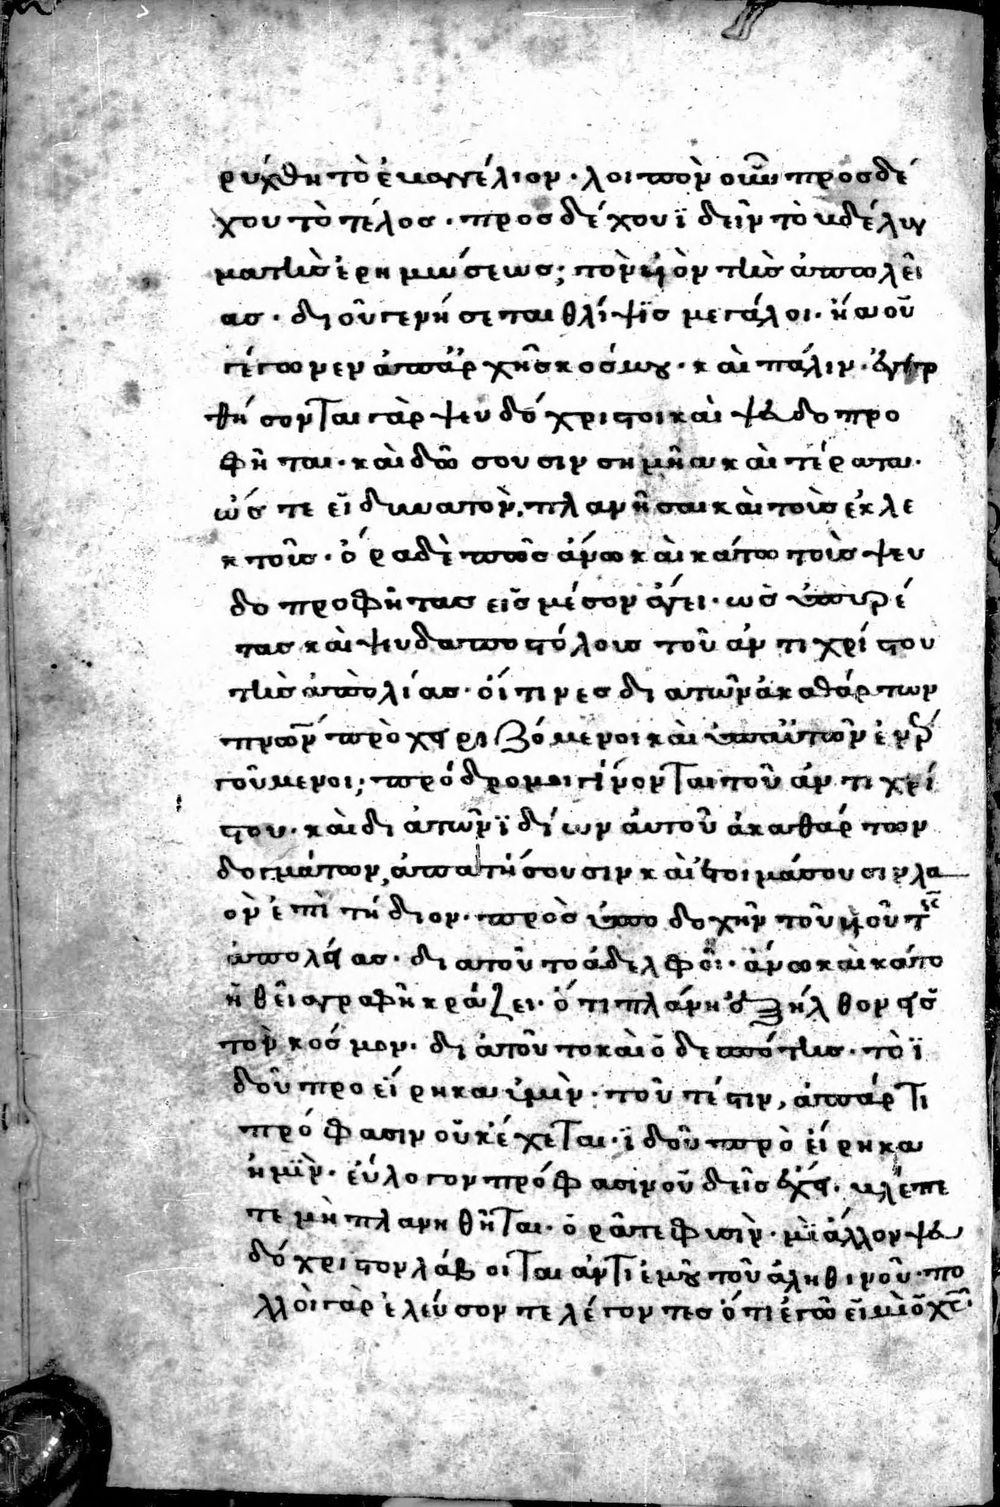 ρύχθη τὸ ἐυαγγέλιον · λοιπὸν οὖν προσδέ
χου τὸ τέλοσ · προσδέχου ϊδεῖν τὸ βδέλυγ
μα τῆσ ἐρημώσεωσ ; τὸν υἱὸν τῆσ ἀπωλεί
ασ · δι οὗ γενήσεται θλίψϊσ μεγάλοι · ἥα οὐ
γέγωνεν ἀπάρχῆσ κόσμου · και πάλιν · ἐγερ
θήσονται γὰρ ψευδόχριστοι καὶ ψευδοπρο
φῆται · καὶ δώσουσιν σημῆα καὶ τέρατα ·
ὡσ τε εἰ δυνατὸν, πλανῆσαι καὶ τοὺσ ἐκλε
κτοῖσ · ὅρα δὲ πῶσ ἄνω καὶ κάτω τοὺσ ψευ
δοπροφῆτασ εἰσ μέσον ἄγει · ὡσ ὑπιρέ
τασ καὶ ψευδαποστόλουσ τοῦ ἀντιχρίστου
τῆσ ἀπολίασ · οἵτινεσ δι ατῶν ἀκαθάρτων
πνῶν προχειριζόμενοι καὶ ὑπαὐτῶν ἐνερ
γούμενοι ; πρόδρομοι γίνονται τοῦ ἀντιχρί
στου · καὶ δι ἀτῶν ϊδίων ἀυτοῦ ἀκαθάρτων
δογμάτων, ἀπατήσουσιν καὶ ἑτοιμάσουσιν λα
ὸν ἐπιτήδιον · πρὸσ ὑποδοχὴν τοῦ υἱοῦ τῆσ
ἀπολείασ · δι ατοῦτο ἀδελφοῖ · ἄνω καὶ κάτο
ἡ θεῖα γραφὴ κράζει · ὅτι πλάνη ἐξήλθον εἰσ
τὸν κόσμον · δι ἀτοῦτο καὶ ὁ δεσπότησ · τὸ ϊ
δοὺ προεἴρηκα ὑμὶν · τοῦτέστιν, ἀπάρτι
πρόφασιν οὐκέχεται · ϊδοὺ πρὸεἴρηκα
ἡμὶν · εὔλογον πρόφασιν οὐδεῖσ ἔχει · βλέπε
τε μὴ πλανηθῆται · ὁρᾶτε φισὶν · μὶ ἄλλον ψευ
δόχριστον λάβοιται ἀντι ἐμοῦ τοῦ ἀληθινοῦ · πο
λλοὶ γὰρ ἐλεύσονται λέγοντεσ ὅτι ἐγὼ εἰμὶ ὁ χσ ·